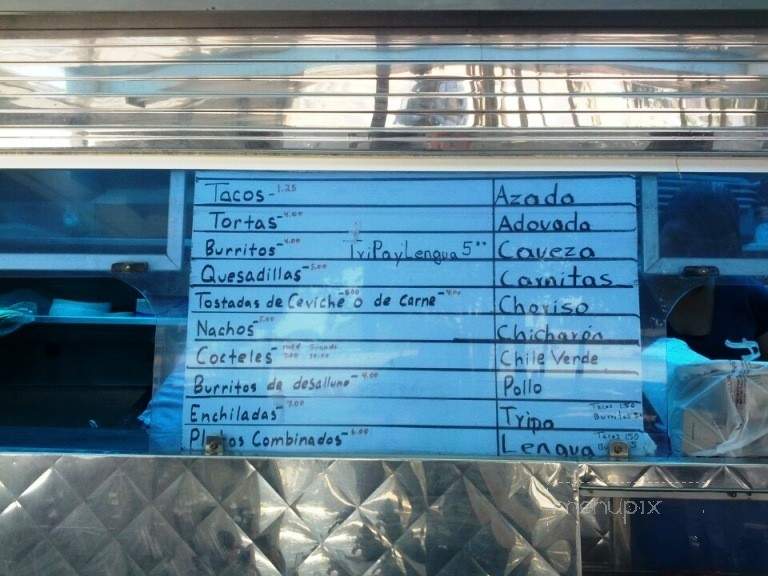 Tacos - 1.25
Tortas - 4.00
Burritos - 4.00 TriPa y Lengua 5°°
Quesadillas - 5.00
Tostadas de Ceviche o de Carne - 4.00
Nachos - 5.00
Cocteles - med Grande
10.00
Burritos de desalluno - 4.00
Enchiladas - 7.00
Platos Combinados - 6.00
Azada
Adovada
Caveza
Carnitas
Choriso
Chicharón
Chile Verde
Pollo
Tripa Tacos 1.50
Burritos 5
Lengua Tacos 1.50
menupix